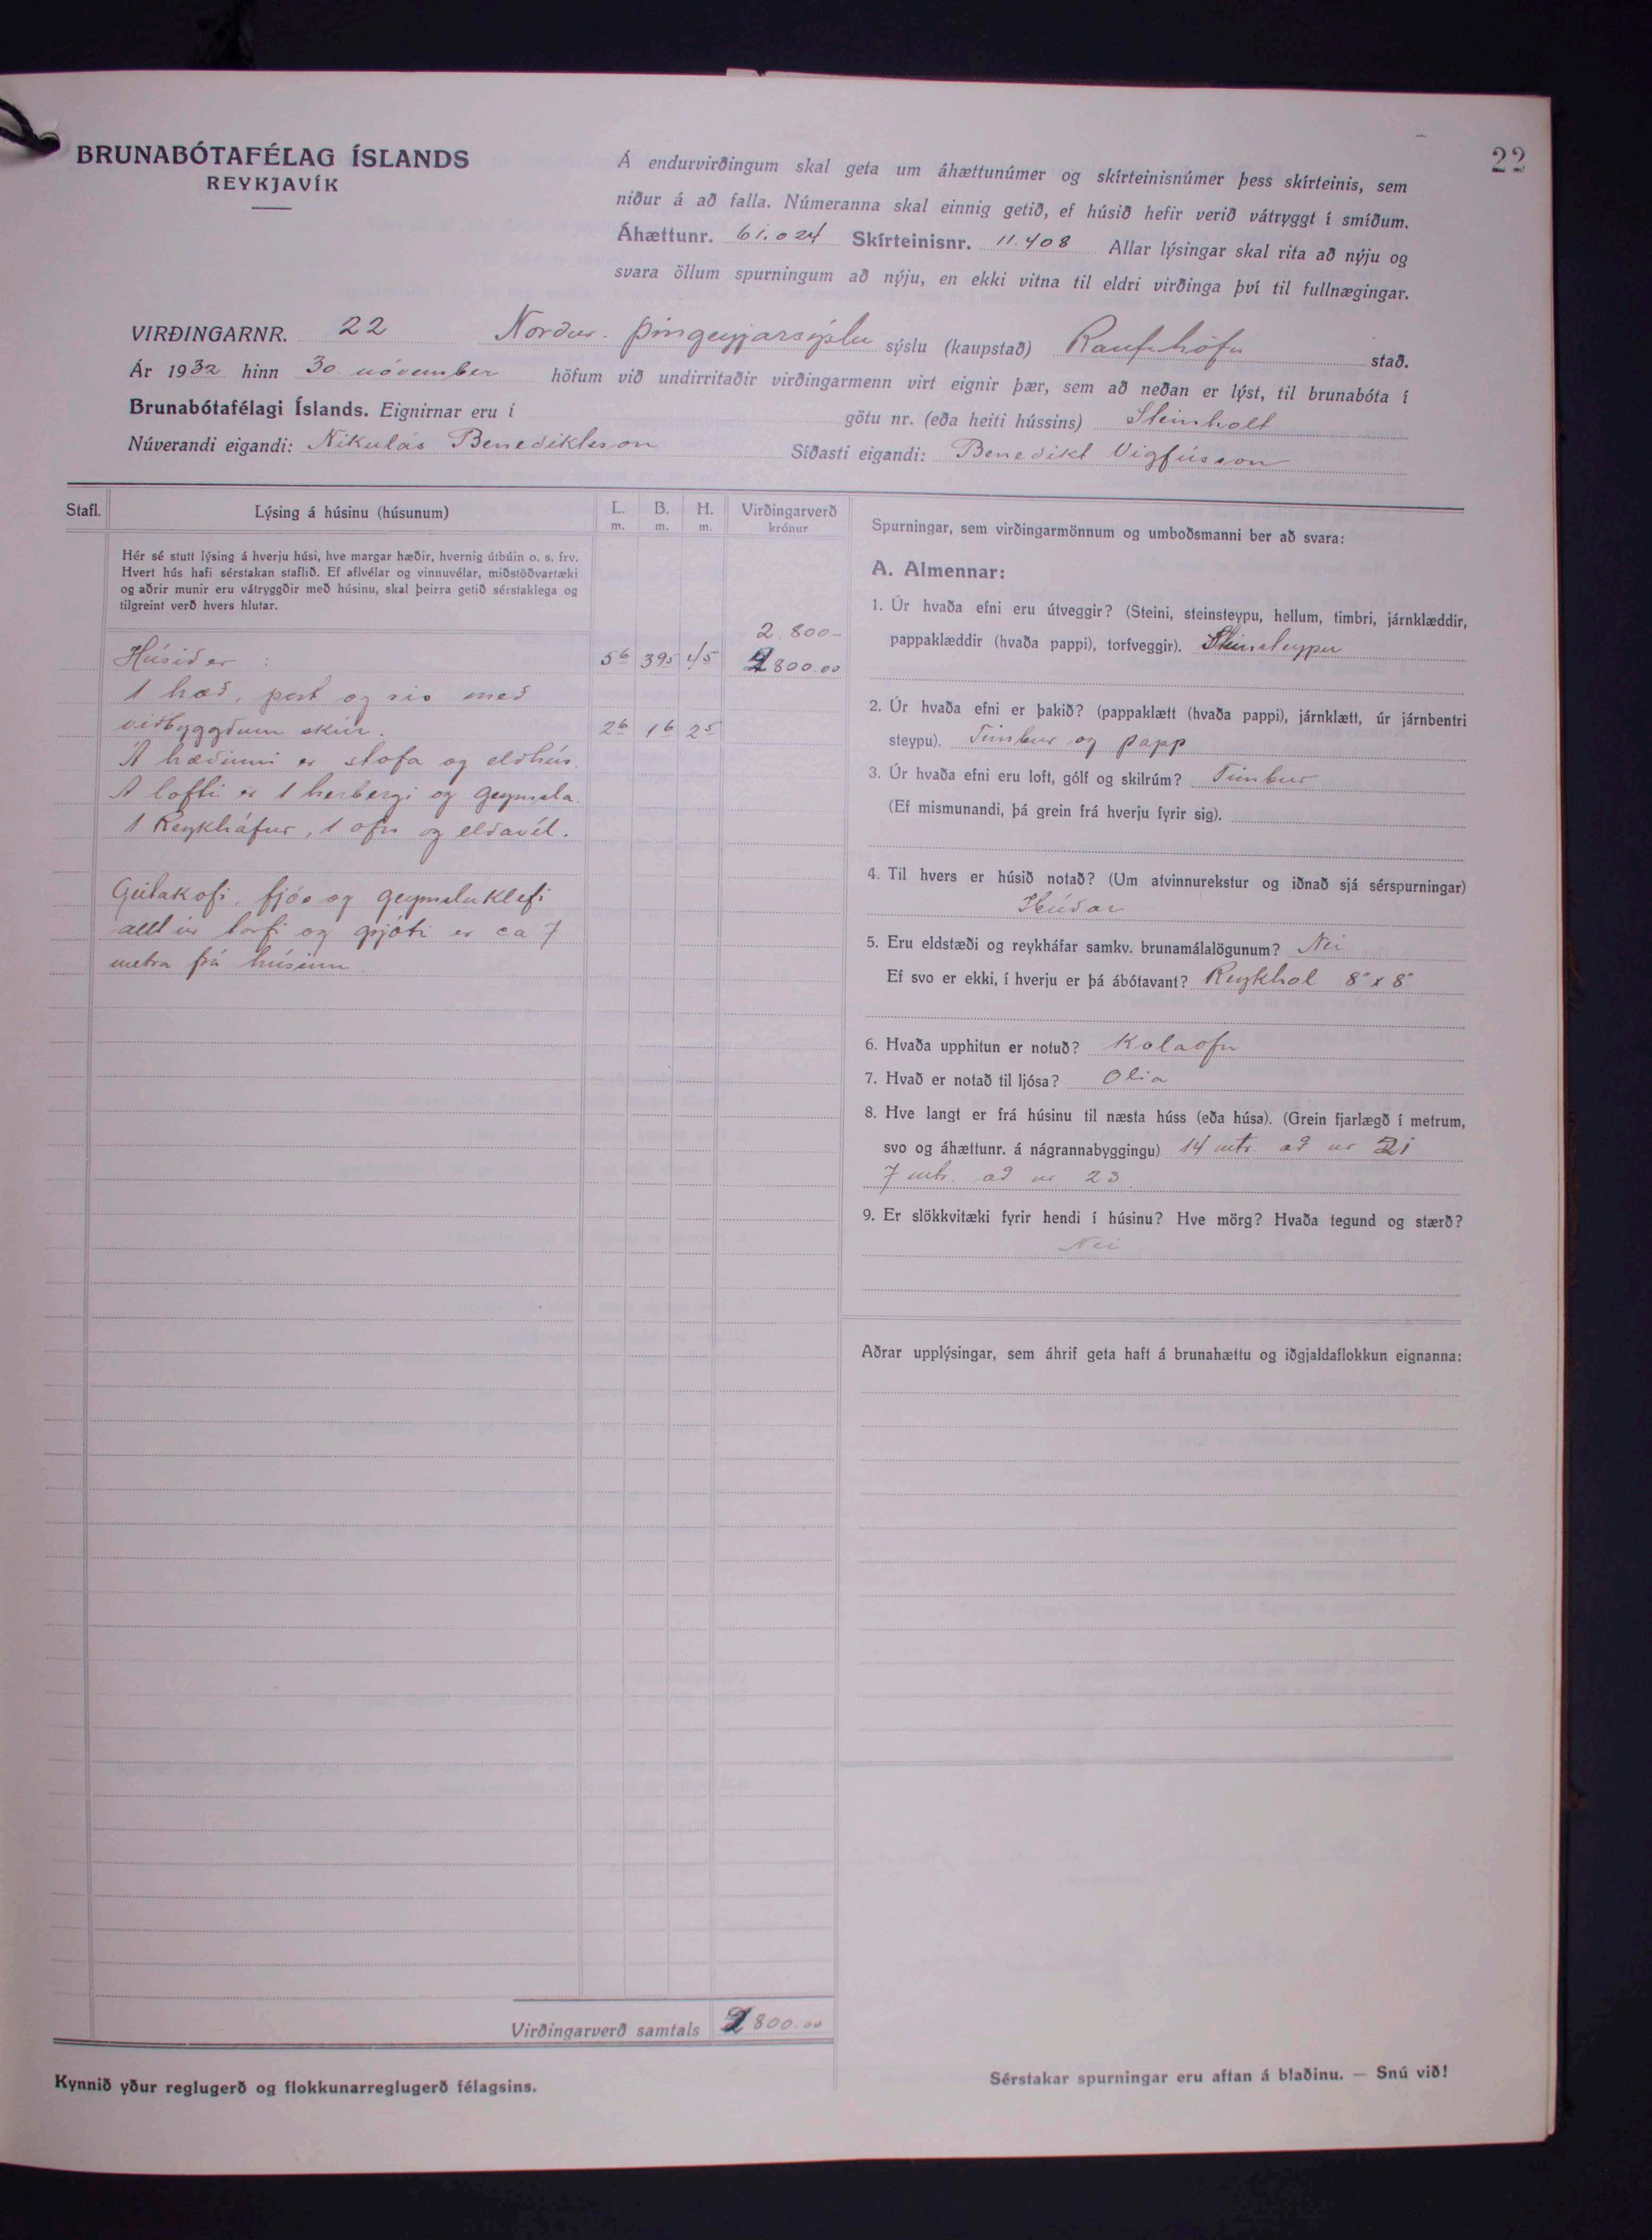 22
BRUNABÓTAFÉLAG ÍSLANDS
REYKJAVÍK
Á endurvirðingum skal geta um áhættunúmer og skírteinisnúmer þess skírteinis, sem
niður á að falla. Númeranna skal einnig getið, ef húsið hefir verið vátryggt í smíðum.
Áhættunr. 61.024 Skírteinisnr. 11.408 Allar lýsingar skal rita að nýju og
svara öllum spurningum að nýju, en ekki vitna til eldri virðinga því til fullnægingar.
VIRÐINGARNR. 22 Norður-Þingeyjarsýslu sýslu (kaupstað) Raufarhöfn stað.
Ár 1932 hinn 30. nóvember höfum við undirritaðir virðingarmenn virt eignir þær, sem að neðan er lýst, til brunabóta í
Brunabótafélagi Íslands. Eignirnar eru í götu nr. (eða heiti hússins) Steinholt
Núverandi eigandi: Nikulás Benediktsson Síðasti eigandi: Benedikt Vigfússon
Stafl. Lýsing á húsinu (húsunum) L. m. B. m. H. m. Virðingarverð krónur
Hér sé stutt lýsing á hverju húsi, hve margar hæðir, hvernig útbúin o. s. frv.
Hvert hús hafi sérstakan staflið. Ef aflvélar og vinnuvélar, miðstöðvartæki
og aðrir munir eru vátryggðir með húsinu, skal þeirra getið sérstaklega og
tilgreint verð hvers hlutar.
2.800-
Húsið er : 5 6 3 95 4/5 2800.00
1 hæð, port og ris með
viðbyggðum skúr. 2 6 1 6 2 5
Á hæðinni er stofa og eldhús.
Á lofti er 1 herbergi og geymsla.
1 Reykháfur, 1 ofn og eldavél.
fjós og geymsluklefi
allt úr torfi og grjóti er ca 7
metra frá húsinu.
Virðingarverð samtals 2800.00
Kynnið yður reglugerð og flokkunarreglugerð félagsins.
Spurningar, sem virðingarmönnum og umboðsmanni ber að svara:
A. Almennar:
1. Úr hvaða efni eru útveggir? (Steini, steinsteypu, hellum, timbri, járnklæddir,
pappaklæddir (hvaða pappi), torfveggir). Steinsteypu
2. Úr hvaða efni er þakið? (pappaklætt (hvaða pappi), járnklætt, úr járnbentri
steypu). Timbur og papp
3. Úr hvaða efni eru loft, gólf og skilrúm? Timbur
(Ef mismunandi, þá grein frá hverju fyrir sig).
4. Til hvers er húsið notað? (Um atvinnurekstur og iðnað sjá sérspurningar)
Íbúðar
5. Eru eldstæði og reykháfar samkv. brunamálalögunum? Nei
Ef svo er ekki, í hverju er þá ábótavant? Reykhol 8" x 8"
6. Hvaða upphitun er notuð? Kolaofn
7. Hvað er notað til ljósa? Olia
8. Hve langt er frá húsinu til næsta húss (eða húsa). (Grein fjarlægð í metrum,
svo og áhættunr. á nágrannabyggingu) 14 mtr. að nr 21
7 mtr. að nr 23.
9. Er slökkvitæki fyrir hendi í húsinu? Hve mörg? Hvaða tegund og stærð?
Nei
Aðrar upplýsingar, sem áhrif geta haft á brunahættu og iðgjaldaflokkun eignanna:
Sérstakar spurningar eru aftan á blaðinu. — Snú við!